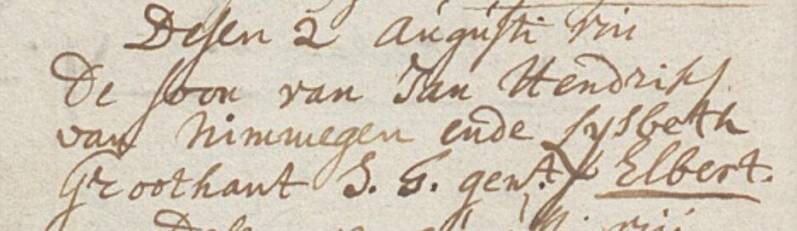 Desen 2 augusti
De soon van Jan Hendriks
van Nimwegen ende Lysbeth
Groothant S. G. gent. Elbert.